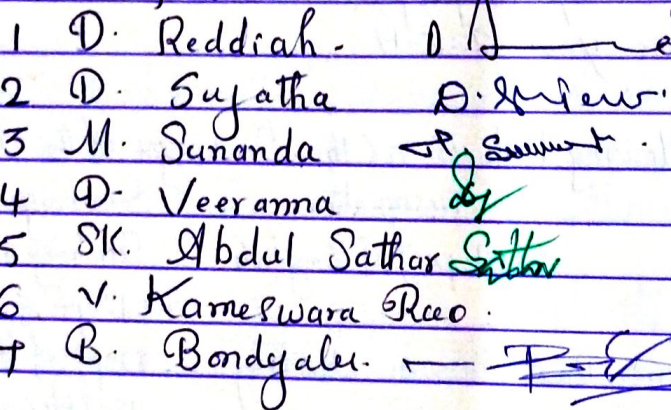 1 D. Reddiah -
2 D. Sujatha
3 M. Sunanda
4 D- Veeranna
5 SK. Abdul Sathar
6 V. Kameswara Rao.
7 B. Bondyalu.